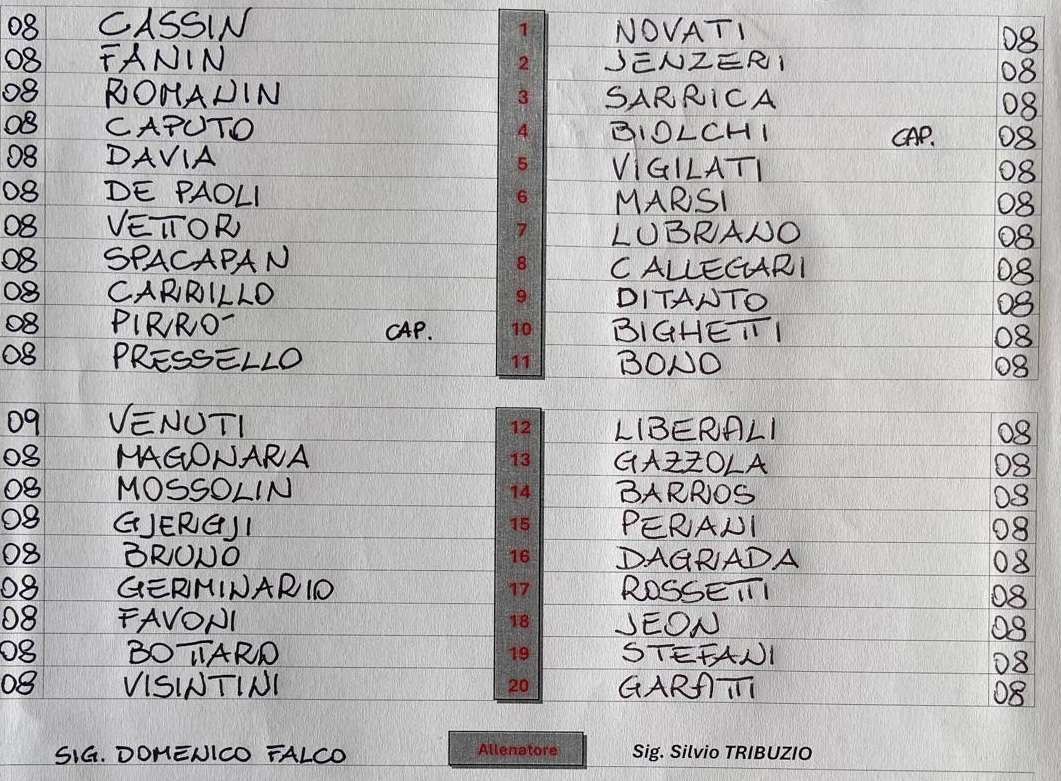 08 CASSIN 1 NOVATI 08
08 FANIN 2 JENZERI 08
08 ROMANIN 3 SARRICA 08
08 CAPUTO 4 BIOLCHI CAP. 08
08 DAVIA 5 VIGILATI 08
08 DE PAOLI 6 MARSI 08
08 VETTOR 7 LUBRANO 08
08 SPACAPAN 8 CALLEGARI 08
08 CARRILLO 9 DITANTO 08
08 PIRRO' CAP. 10 BIGHETTI 08
08 PRESSELLO 11 BONO 08
09 VENUTI 12 LIBERALI 08
08 MAGONARA 13 GAZZOLA 08
08 MOSSOLIN 14 BARRIOS 08
08 GJERGJI 15 PERANI 08
08 BRUNO 16 DAGRADA 08
08 GERMINARIO 17 ROSSETTI 08
08 FAVONI 18 JEON 08
08 BOTTARO 19 STEFANI 08
08 VISINTINI 20 GARATTI 08
SIG. DOMENICO FALCO Allenatore Sig. Silvio TRIBUZIO